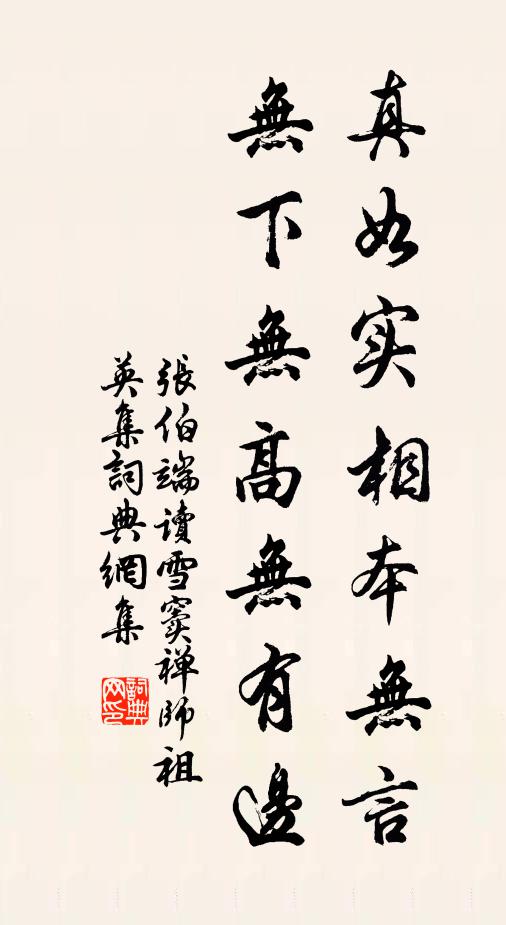 真如实相本無言
無下無高無有邊
張伯端读雪窦禅師祖
英集詞典網集
詞典网印